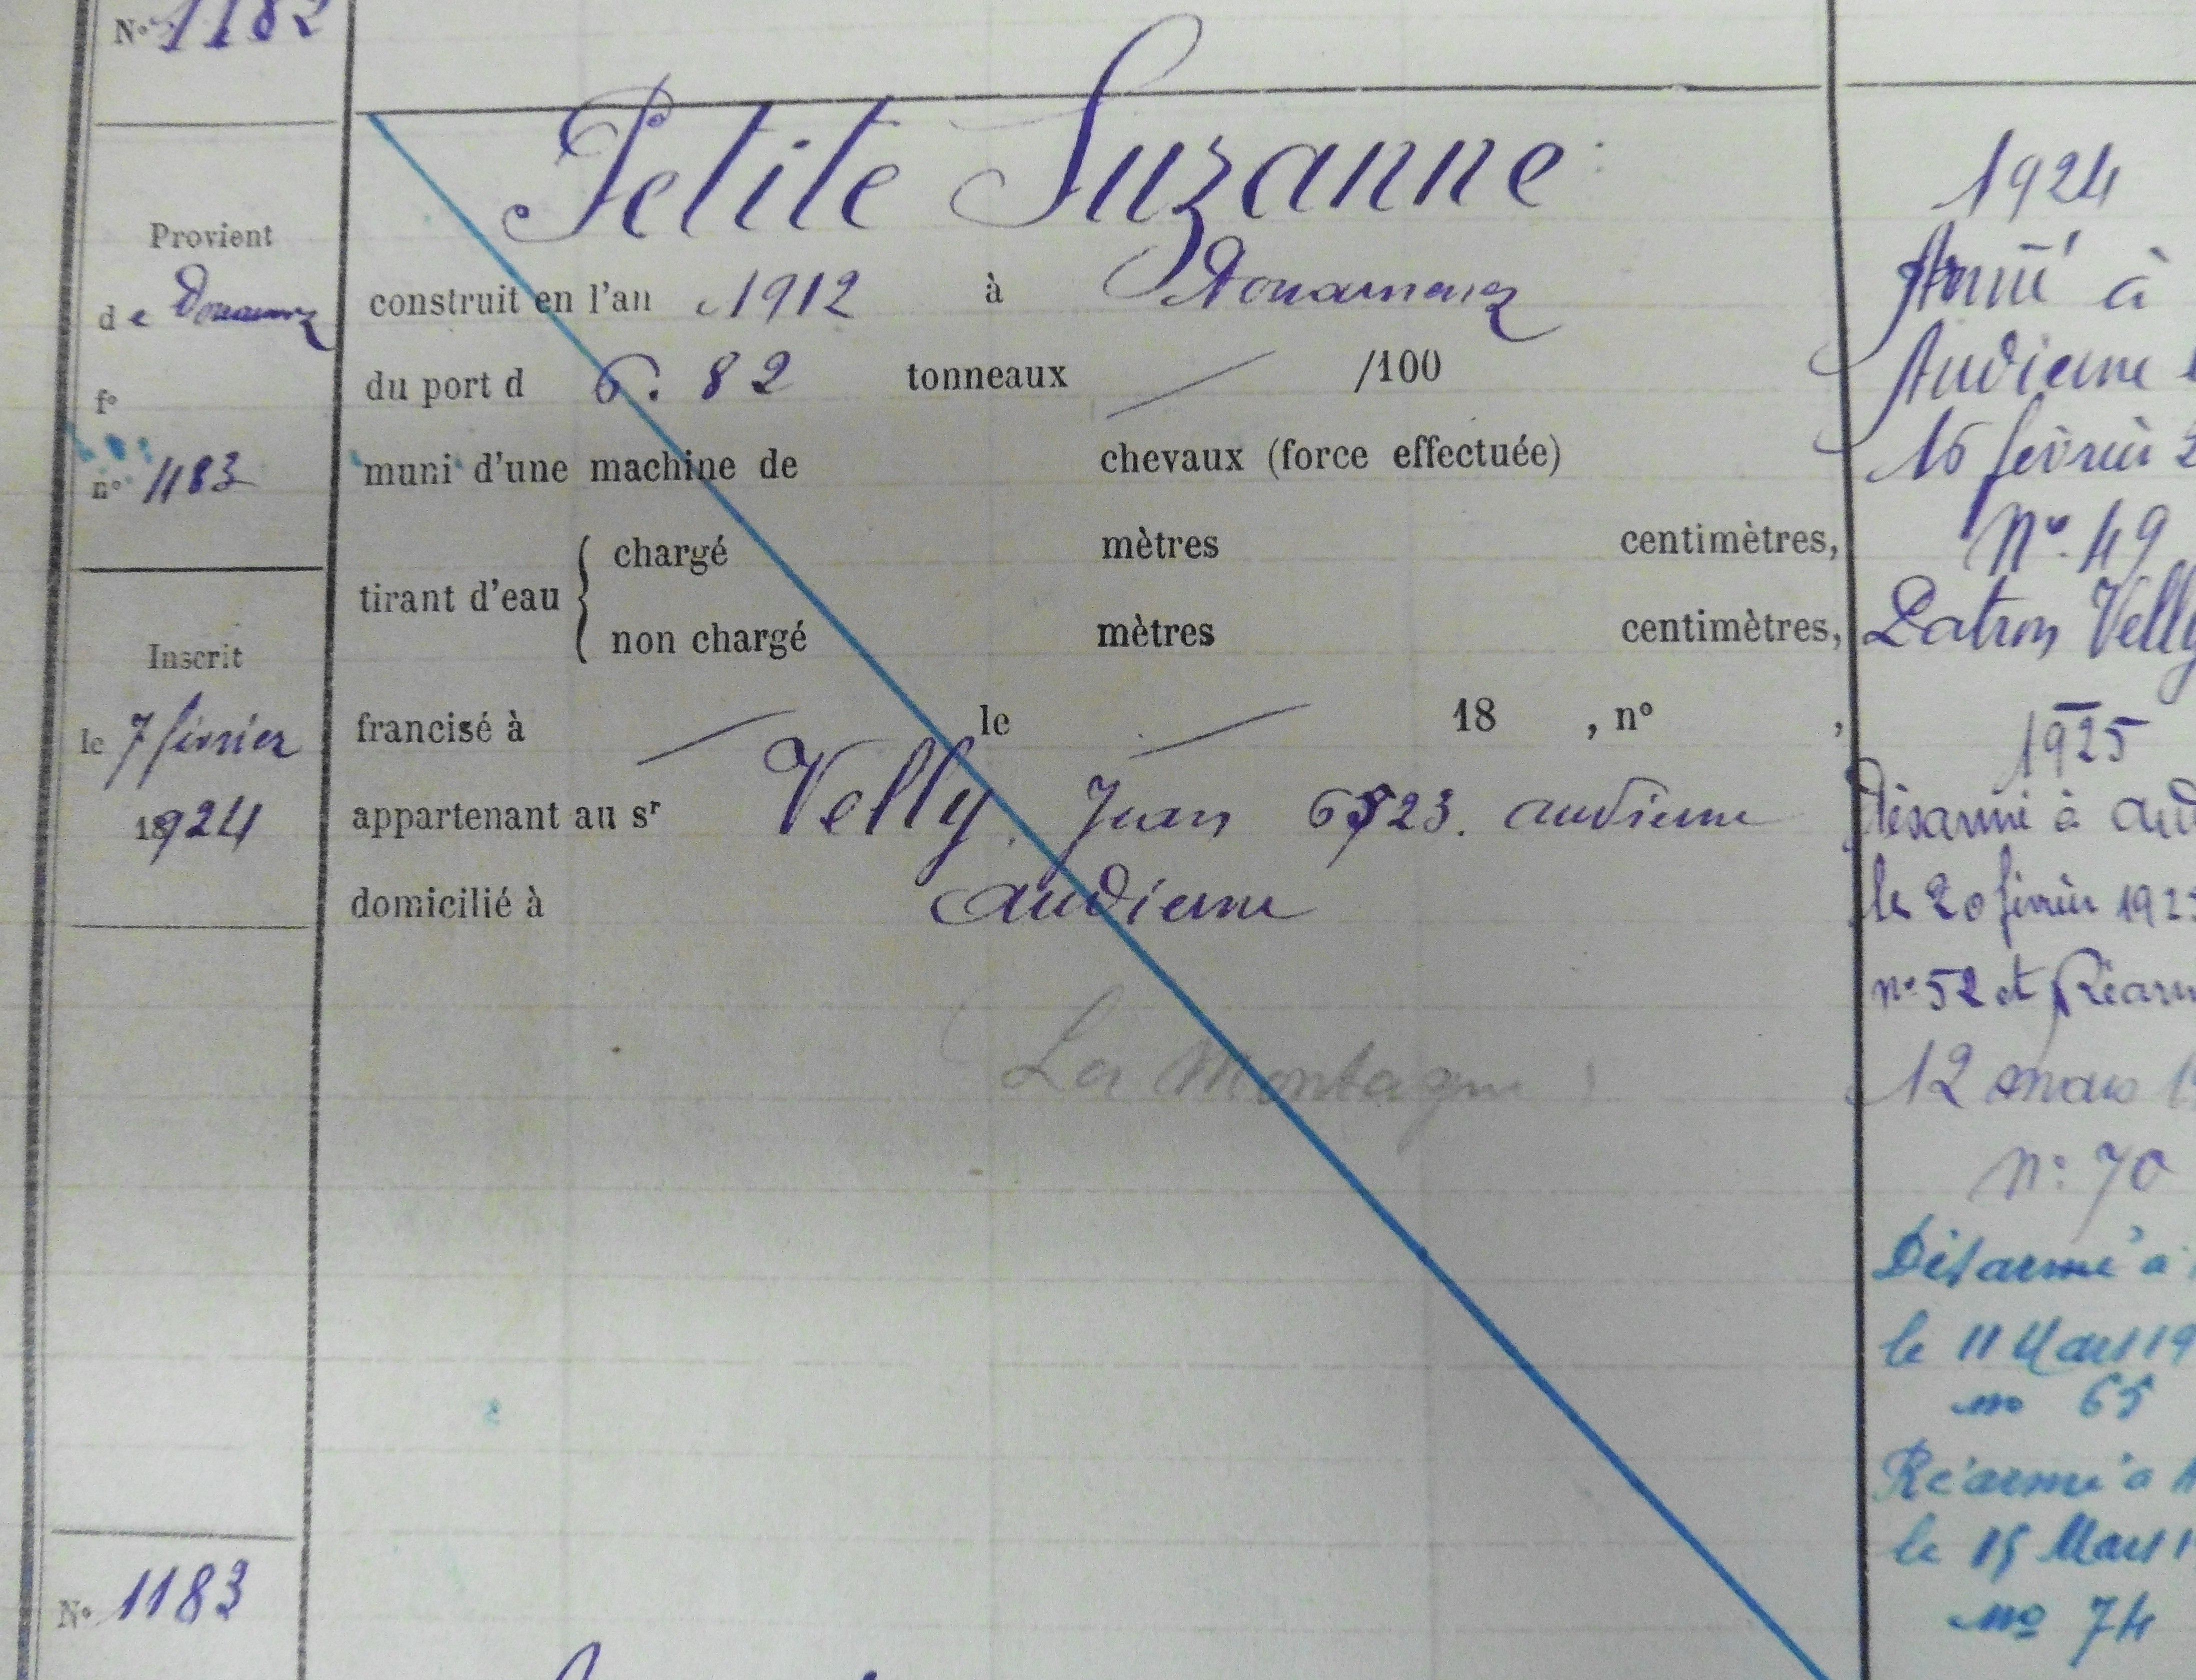 N° 1182
Petite Suzanne
Provient
de Douarnenez
f°
n° 1183
construit en l'an 1912 à Douarnenez
du port d 6. 82 tonneaux /100
muni d'une machine de chevaux (force effectuée)
tirant d'eau { chargé mètres centimètres,
non chargé mètres centimètres,
Inscrit
le 7 février
1924
francisé à le 18 , n° ,
appartenant au sr Velly Jean audierne
domicilié à audierne
La Montagne
N° 1183
1924
Armé à
Audierne
16 février
N° 49
Patron Velly
1925
Désarmé à aud
le 20 février 192
n° 52 et Réarm
12 mars 1
n° 70
Désarmé à
le 11 Mars 19
no 65
Réarmé à A
le 15 Mars 1
no 74